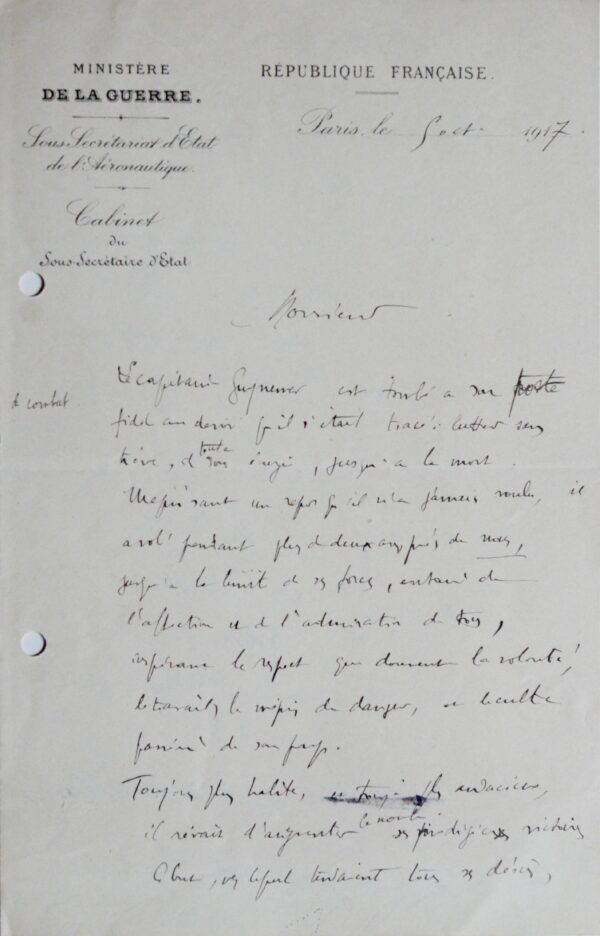 MINISTÈRE
DE LA GUERRE.
Sous-Secrétariat d'Etat
de l'Aéronautique.
Cabinet
du
Sous-Secrétaire d'Etat
RÉPUBLIQUE FRANÇAISE.
Paris, le 5 oct. 1917.
Monsieur
Le capitaine Guynemer est tombé à son poste
de combat
fidèle au devoir qu'il s'était tracé : lutter sans
trêve, de toute son énergie, jusqu'à la mort.
Méprisant un repos qu'il n'a jamais voulu, il
a volé pendant plus de deux ans près de nous,
jusqu'à la limite de ses forces, entouré de
l'affection et de l'admiration de tous,
inspirant le respect que donnent la volonté,
le travail, le mépris du danger, et le culte
passionné de son pays.
Toujours plus habile, et toujours plus audacieux,
il rêvait d'augmenter le nombre
victoires
Ce but, vers lequel tendaient tous ses désirs,